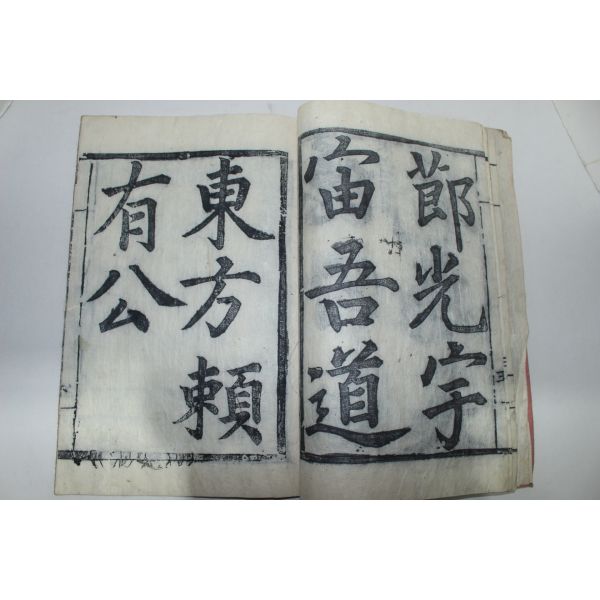 節光宇
宙吾道
東方頼
有公